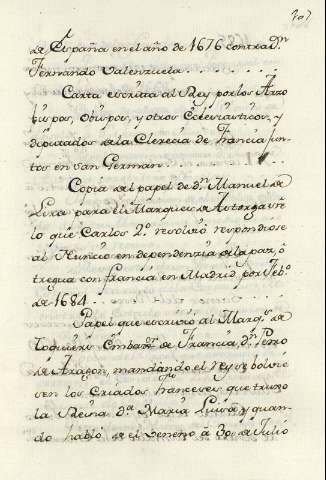 de España en el año de 1676 contra Dⁿ
Fernando Valenzuela
Carta escrita al Rey por los Arzo
bispos, Obispos, y otros Eclesiasticos, y
diputados de la Clerecia de Francia jun
tos en San German
Copia del papel de dⁿ Manuel de
Lira para el Marques de Astorga sre
lo que Carlos 2º resolvió respondiese
al Nuncio en dependencia de la paz, ó
tregua con Francia en Madrid por Febº
de 1684
Papel que escrivió al Marqˢ de
Embaxʳ de Francia dⁿ Pedro
de Aragon, mandando el rey se bolvie
sen los Criados franceses que truxo
la Reina Dª Maria Luisa, y quan
do habló de el veneno á 30 de Julio